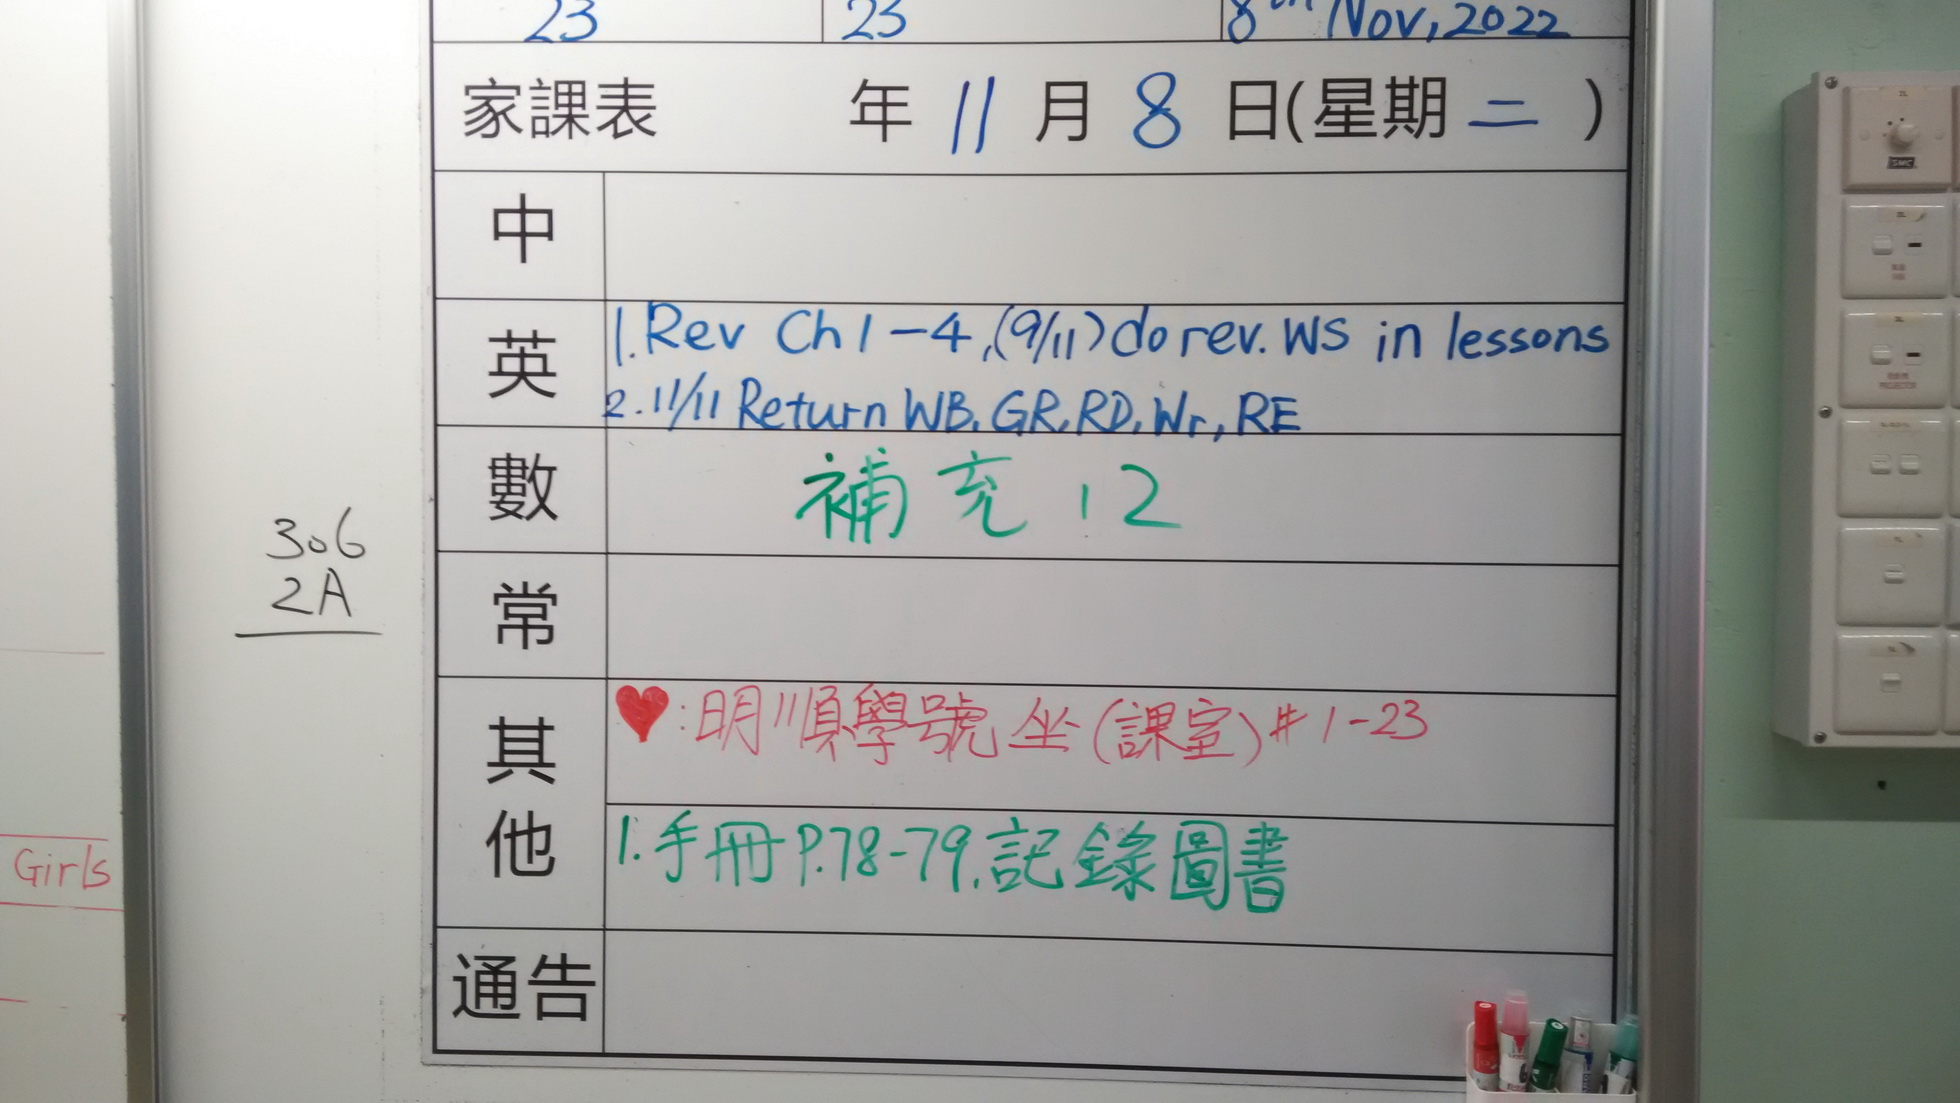 23 23 8th Nov, 2022
家課表 年 11 月 8 日(星期 二 )
中
英 1. Rev Ch 1-4, (9/11) do rev. WS in lessons
2. 11/11 Return WB, GR, RD, Wr, RE
數 補充 12
常
其他 ♥: 明順學號坐(課室)#1-23
1. 手冊P.78-79, 記錄圖書
通告
306
2A
Girls
SMC